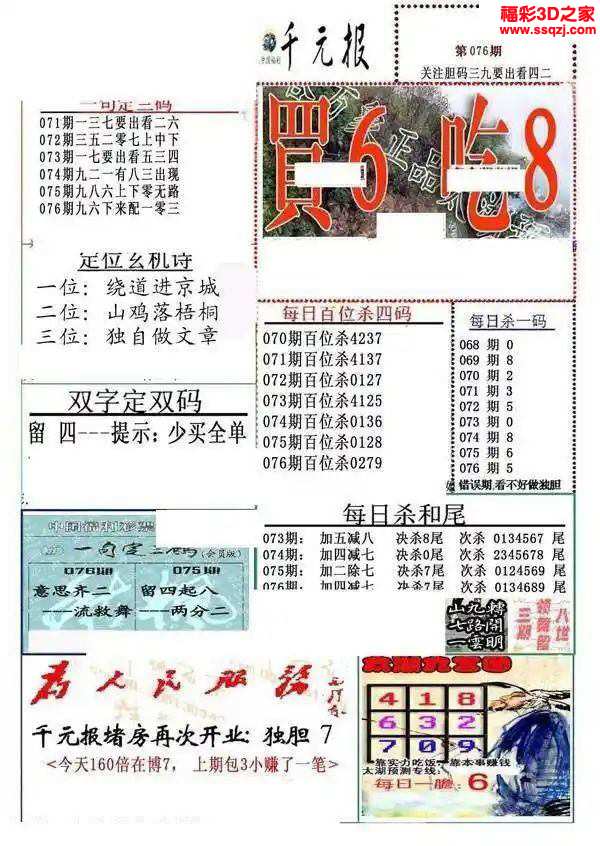 福彩3D之家
www.ssqzj.com
千元报
第076期
关注胆码三九要出看四二
一句定三码
071期一三七要出看二六
072期三五二零七上中下
073期一七要出看五三四
074期九二一有八三出现
075期九八六上下零无路
076期九六下来配一零三
買6吃8
定位玄机诗
一位：绕道进京城
二位：山鸡落梧桐
三位：独自做文章
每日百位杀四码
070期百位杀4237
071期百位杀4137
072期百位杀0127
073期百位杀4125
074期百位杀0136
075期百位杀0128
076期百位杀0279
每日杀一码
068 期 0
069 期 8
070 期 2
071 期 3
072 期 5
073 期 0
074 期 8
075 期 6
076 期 5
错误期,看不好做独胆
双字定双码
留 四---提示：少买全单
每日杀和尾
073期： 加五减八 决杀8尾 次杀 0134567 尾
074期： 加四减七 决杀0尾 次杀 2345678 尾
075期： 加二除七 决杀7尾 次杀 0124569 尾
076期： 加四减七 决杀7尾 次杀 0134689 尾
一句定三码(会员版)
076期 075期
意思齐二 留四起八
——流救舞 ——两分二
山九轉
七路開
一雲明
为人民服务
千元报堵房再次开业：独胆 7
<今天160倍在博7， 上期包3小赚了一笔>
太湖九宫图
4 1 8
6 3 2
7 0 9
靠实力吃饭，靠本事赚钱
太湖预测专线：
每日一胆： 6